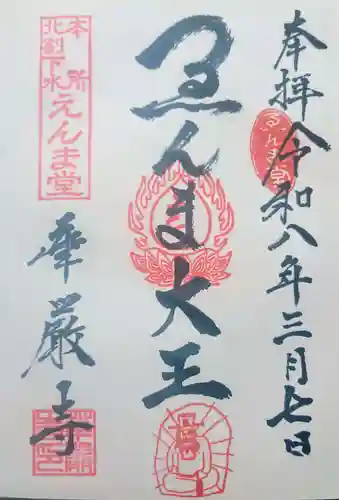 奉拝 令和八年三月七日
ゑんま堂
ゑんま大王
本所
北割下水
えんま堂
華厳寺